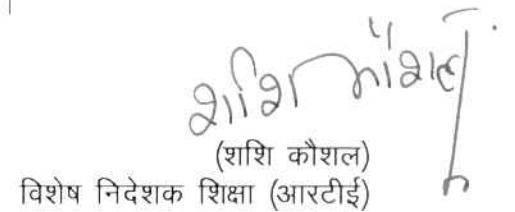 शशि कौशल
(शशि कौशल)
विशेष निदेशक शिक्षा (आरटीई)